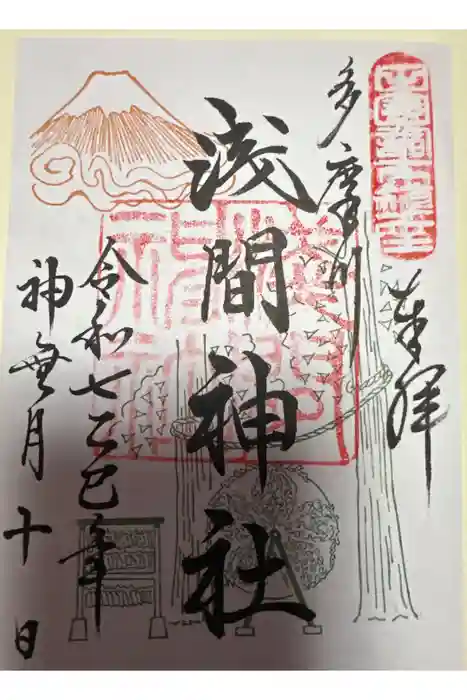 奉拝
多摩川
浅間神社
令和七乙巳年
神無月十日